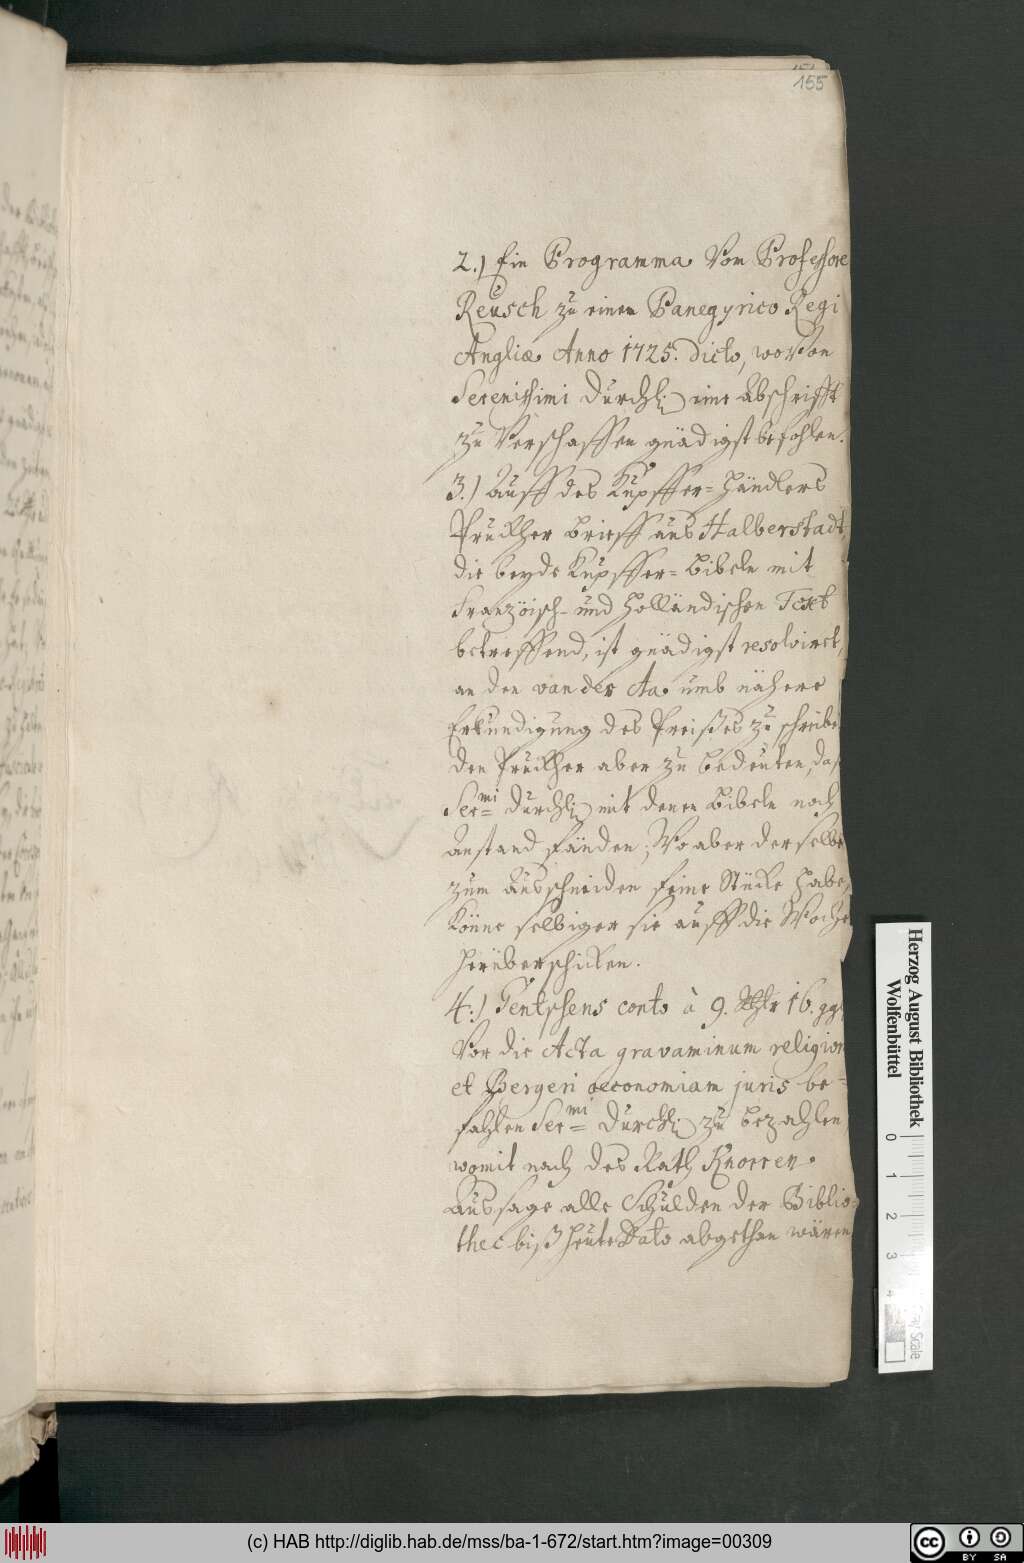 155
2.) Ein Programma Vom Professore
Reusch zu einem Panegyrico Regi
Angliæ Anno 1725. dicto, wovon
Serenissimi Durchl. eine Abschrifft
zu verschaffen gnädigst befohlen.
3.) Auff des Kupffer-Händlers
Brieff aus Halberstadt,
die beyde Kupffer-Bibeln mit
Französisch- und Holländischen Text
betreffend, ist gnädigst resolviret,
an den van der Aa umb nähere
Erkundigung des Preißes zu schreibe
den aber zu bedeuten, das
Ser=mi Durchl. mit denen Bibeln noch
Anstand fänden; Wo aber derselbe
zum Ausschneiden feine Stücke habe,
Könne selbiger sie auff die Woche
herüberschicken.
4.) conto à 9. Rthlr 16. ggr
Vor die Acta gravaminum religion
et Bergeri oeconomiam juris be-
fahlen Ser=mi Durchl. zu bezahlen
womit nach des Rath Knorren
Aussage alle Schulden der Biblio-
thec biß heute Dato abgethan wären
Herzog August Bibliothek
Wolfenbüttel
0 1 2 3 4
Scale
(c) HAB http://diglib.hab.de/mss/ba-1-672/start.htm?image=00309
cc BY SA